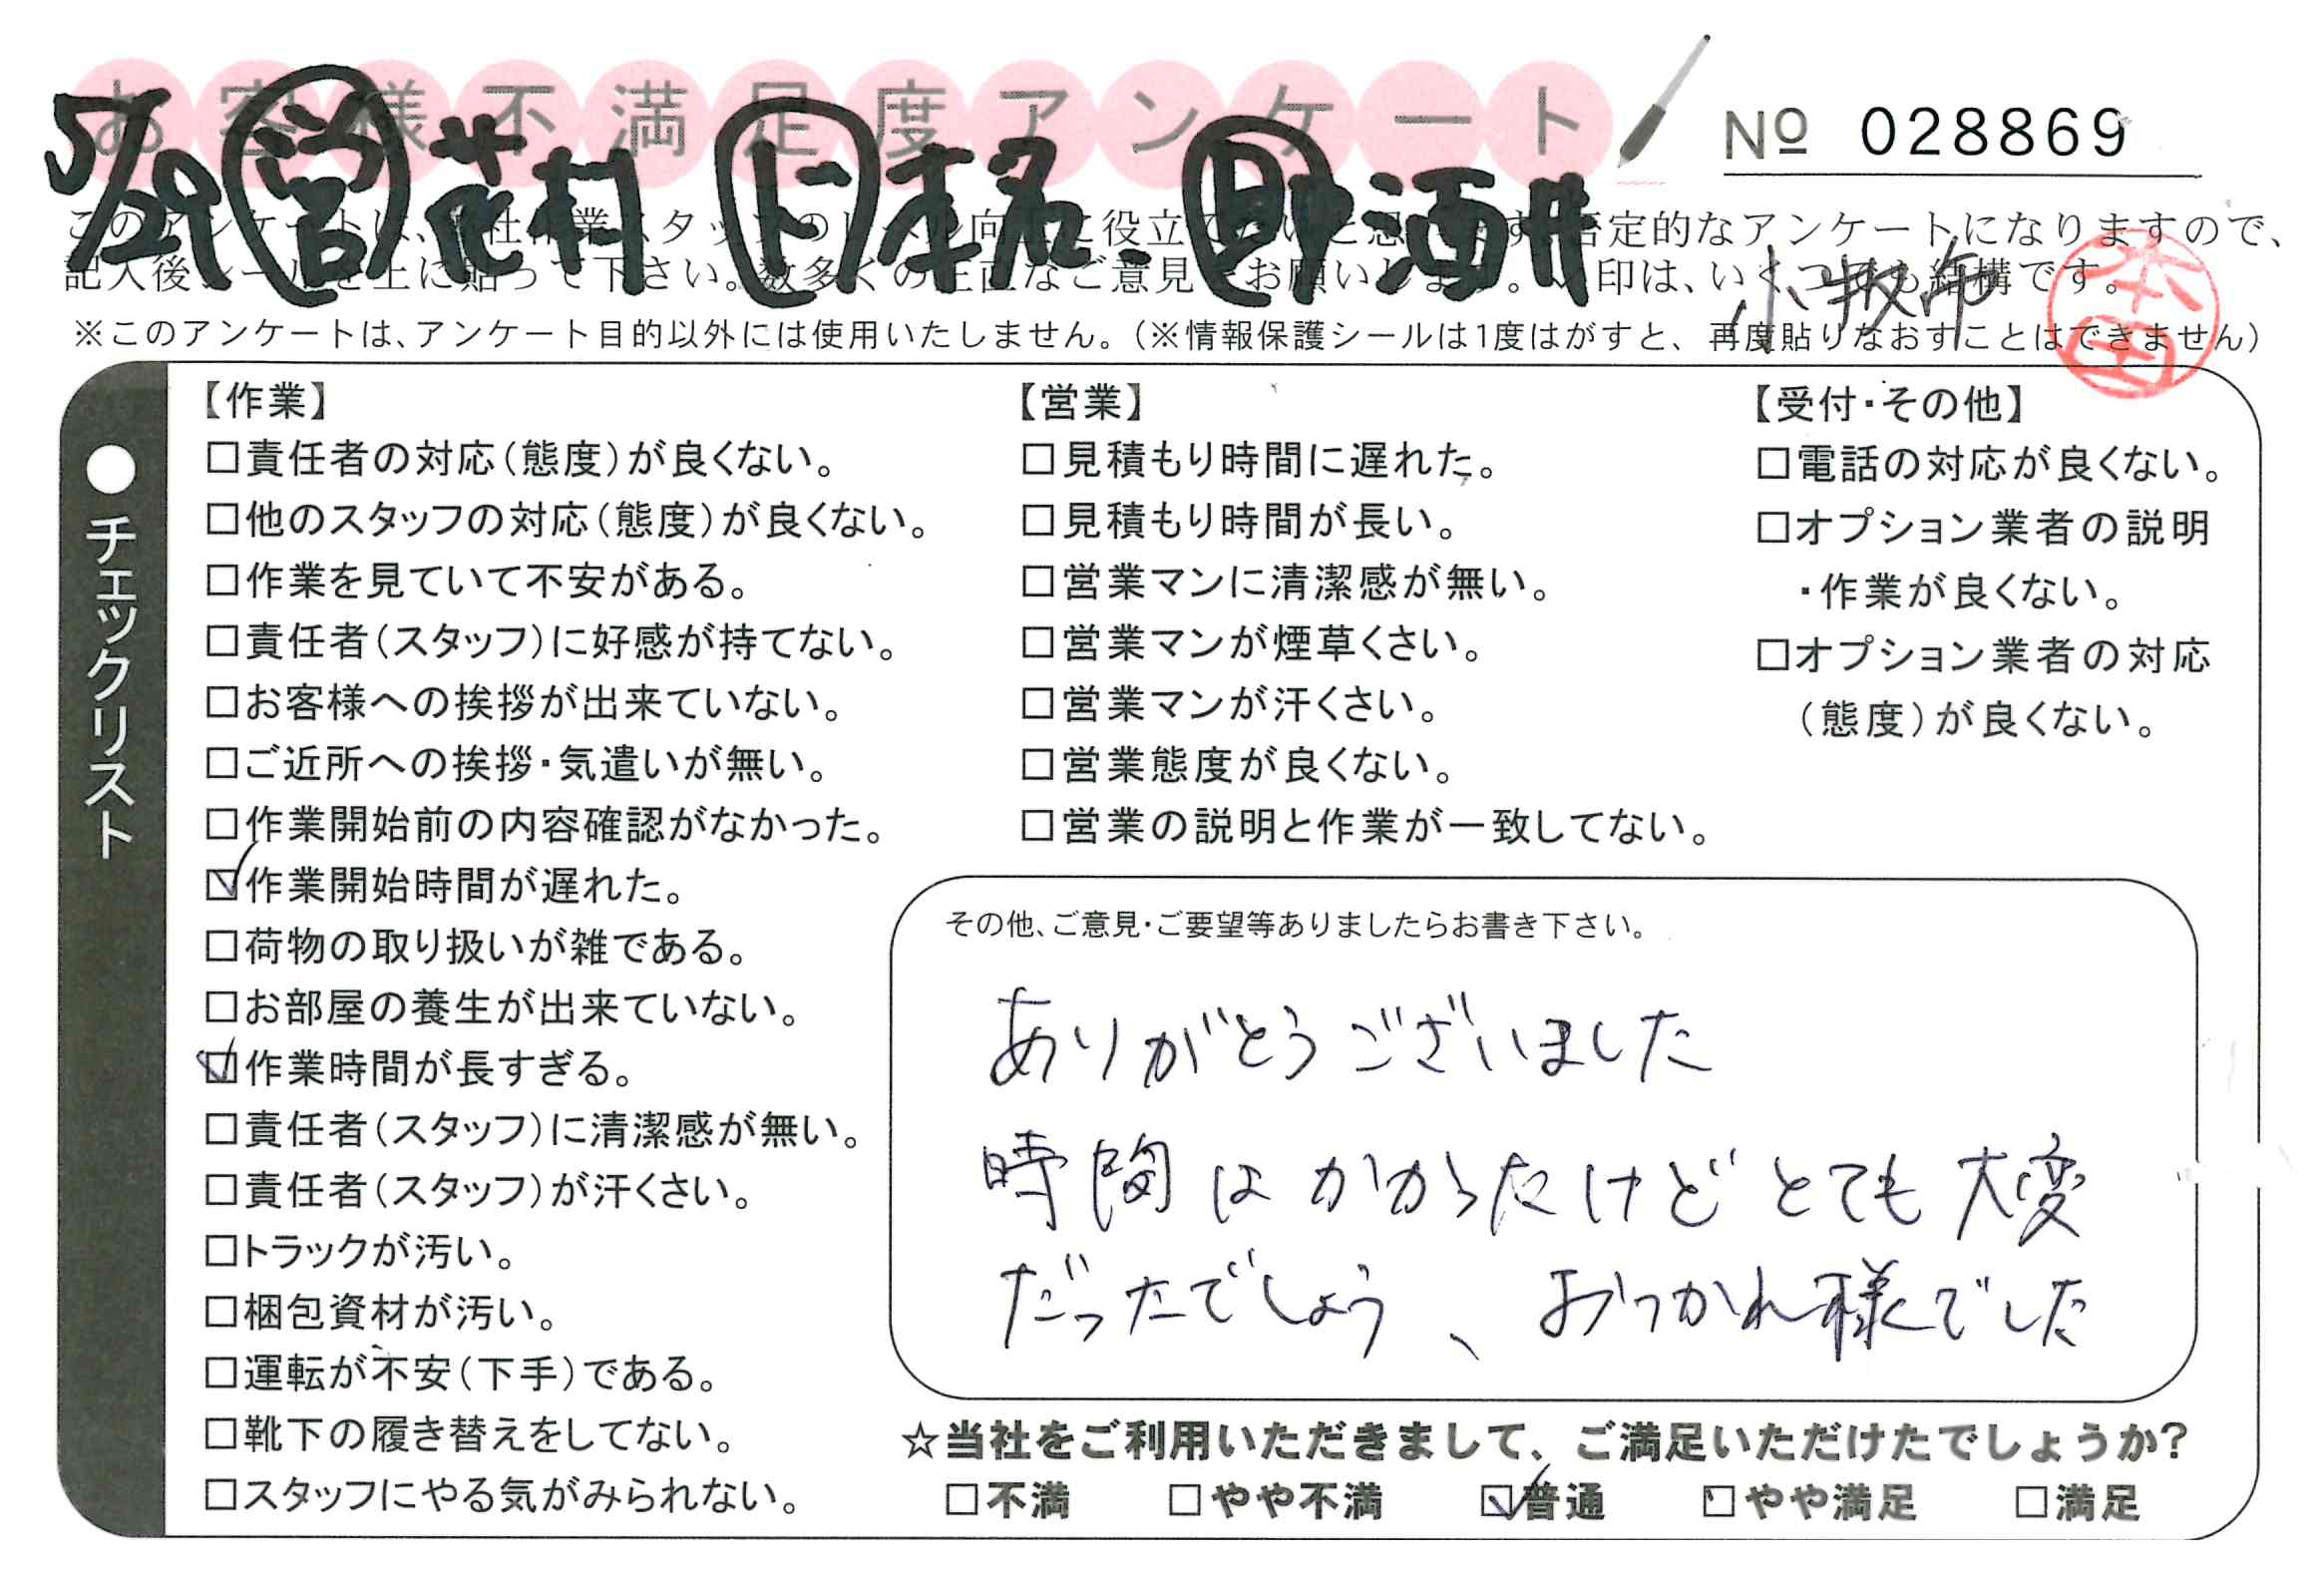 お客様不満足度アンケート
№ 028869
5/29 営 花村 ド 本名、 助 酒井
このアンケートは、当社作業スタッフのレベル向上に役立てたいと思います。否定的なアンケートになりますので、
記入後シールを上に貼って下さい。数多くの正直なご意見をお願いします。✓印は、いくつでも結構です。
小牧市
本田
※このアンケートは、アンケート目的以外には使用いたしません。(※情報保護シールは1度はがすと、再度貼りなおすことはできません)
●チェックリスト
【作業】
□責任者の対応(態度)が良くない。
□他のスタッフの対応(態度)が良くない。
□作業を見ていて不安がある。
□責任者(スタッフ)に好感が持てない。
□お客様への挨拶が出来ていない。
□ご近所への挨拶・気遣いが無い。
□作業開始前の内容確認がなかった。
☑作業開始時間が遅れた。
□荷物の取り扱いが雑である。
□お部屋の養生が出来ていない。
☑作業時間が長すぎる。
□責任者(スタッフ)に清潔感が無い。
□責任者(スタッフ)が汗くさい。
□トラックが汚い。
□梱包資材が汚い。
□運転が不安(下手)である。
□靴下の履き替えをしてない。
□スタッフにやる気がみられない。
【営業】
□見積もり時間に遅れた。
□見積もり時間が長い。
□営業マンに清潔感が無い。
□営業マンが煙草くさい。
□営業マンが汗くさい。
□営業態度が良くない。
□営業の説明と作業が一致してない。
【受付・その他】
□電話の対応が良くない。
□オプション業者の説明
・作業が良くない。
□オプション業者の対応
(態度)が良くない。
その他、ご意見・ご要望等ありましたらお書き下さい。
ありがとうございました
時間はかかったけどとても大変
だったでしょう、おつかれ様でした
☆当社をご利用いただきまして、ご満足いただけたでしょうか?
□不満 □やや不満 ☑普通 □やや満足 □満足